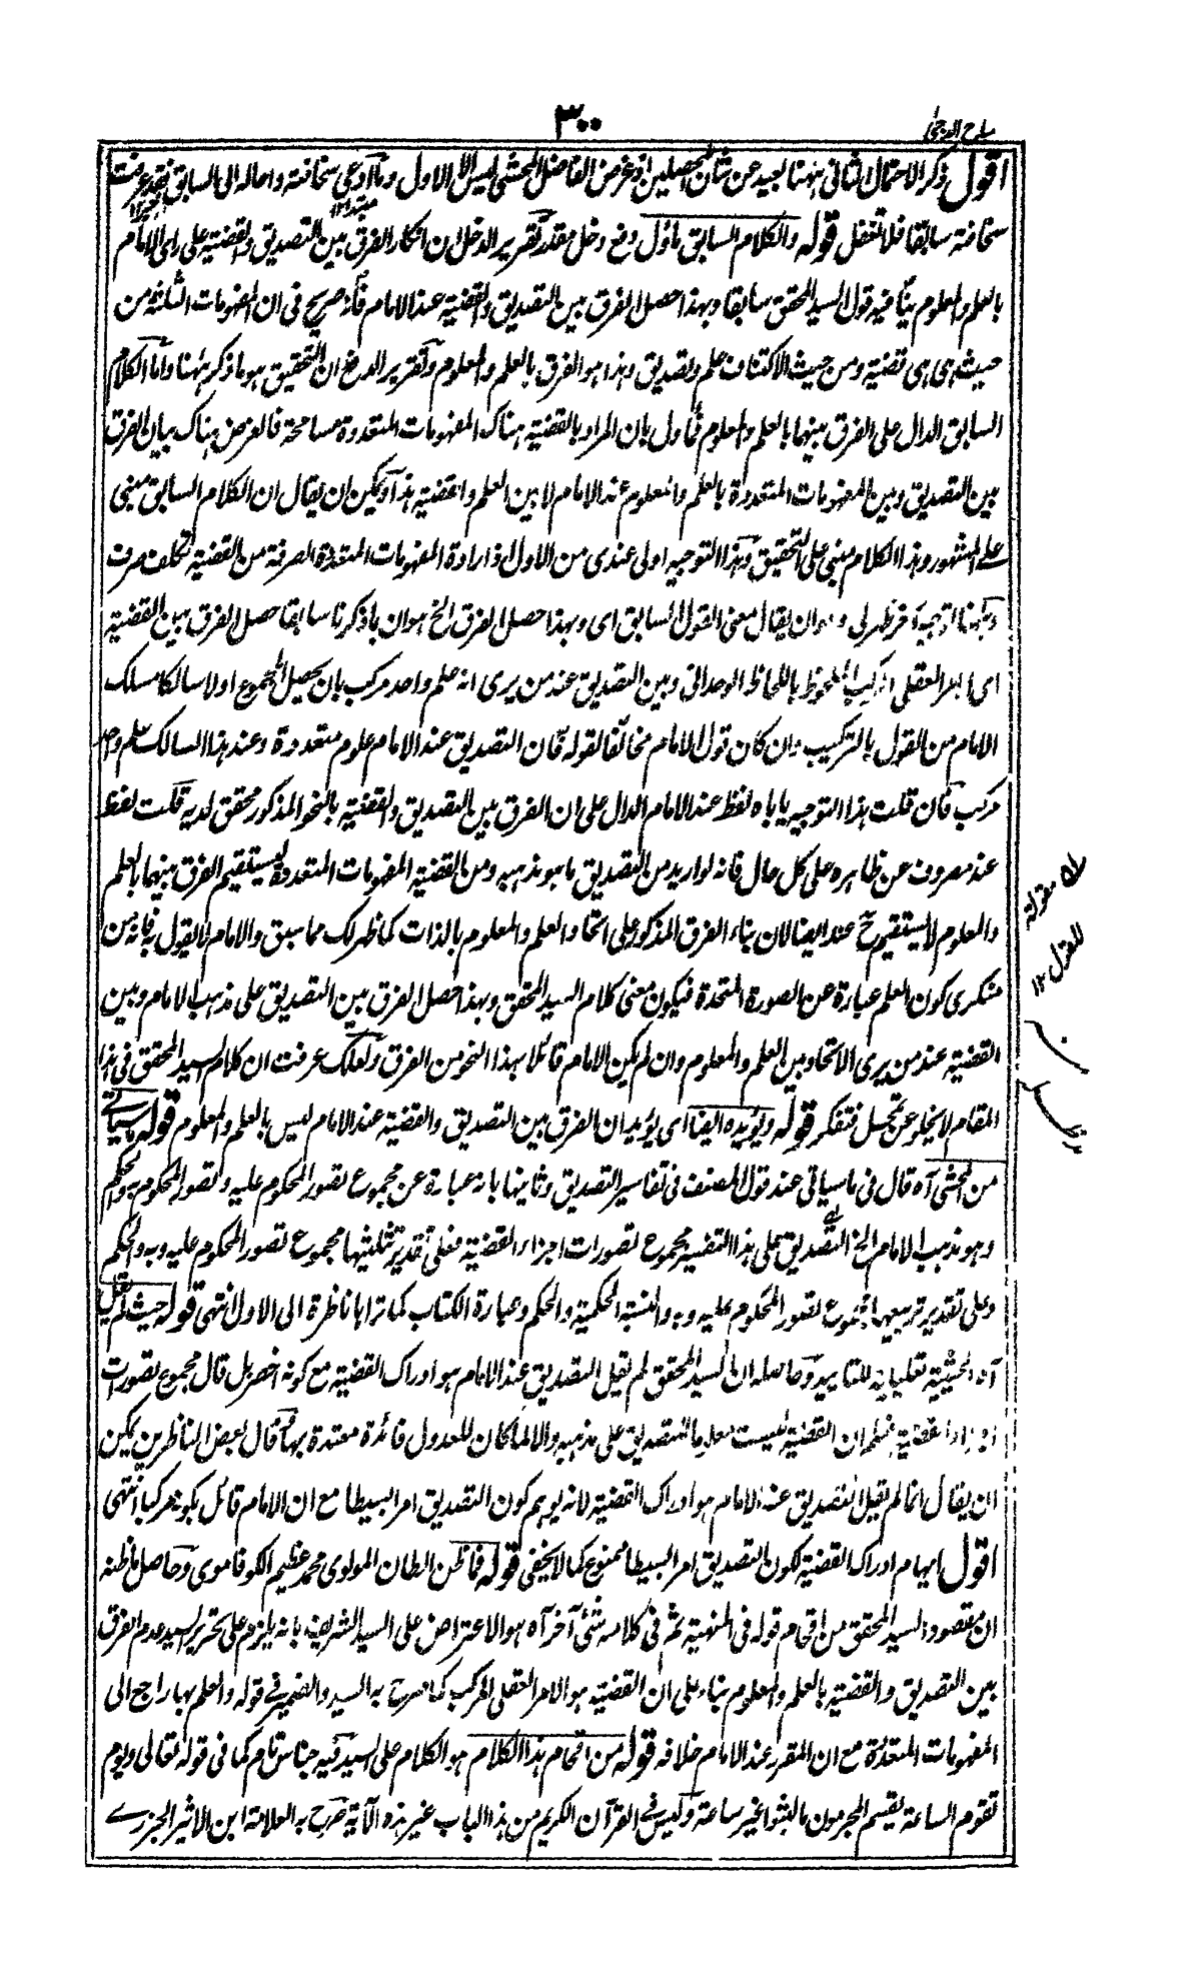 ٣٠٠
اقول ذكر الاحتمال الثانى ههنا بعيد عن شان المحصلين اذ غرض الفاضل المحشى ليس الا الاول وما ادعى سخافته واحاله الى السابق فقد عرفت
سخافته سابقا فلا تغفل قوله والكلام السابق ماؤل دفع دخل مقدر تقرير الدخل ان انكار الفرق بين التصديق والقضية على راى الامام
بالعلم والمعلوم ينافيه قول السيد المحقق سابقا وبهذا حصل الفرق بين التصديق والقضية عند الامام فانه صريح فى ان المفهومات الثلثة من
حيث هى هى قضية ومن حيث الاكتناف علم وتصديق وهذا هو الفرق بالعلم والمعلوم وتقرير الدفع ان التحقيق هو ما ذكر ههنا واما الكلام
السابق الدال على الفرق بينهما بالعلم والمعلوم فماول بان المراد بالقضية هناك المفهومات المتعددة مسامحة فالغرض هناك بيان الفرق
بين التصديق وبين المفهومات المتعددة بالعلم والمعلوم عند الامام لا بين العلم والقضية هذا ويمكن ان يقال ان الكلام السابق مبنى
على المشهور وهذا الكلام مبنى على التحقيق وهذا التوجيه اولى عندى من الاول اذ ارادة المفهومات المتعددة الصرفة من القضية تكلف صرف
وههنا توجيه آخر ظهر لى وهو ان يقال معنى القول السابق اى وبهذا حصل الفرق الخ هو ان بما ذكرنا سابقا حصل الفرق بين القضية
اى الامر العقلى المركب الملحوظ باللحاظ الوحدانى وبين التصديق عند من يرى انه علم واحد مركب بان يحصل المجموع اولا سالكا مسلك
الامام من القول بالتركيب وان كان قول الامام مخالفا لقوله فان التصديق عند الامام علوم متعددة وعند هذا السالك علم واحد
مركب فان قلت هذا التوجيه ياباه لفظ عند الامام الدال على ان الفرق بين التصديق والقضية بالنحو المذكور محقق لديه قلت لفظ
عند مصروف عن ظاهره على كل حال فانه لو اريد من التصديق ما هو مذهبه ومن القضية المفهومات المتعددة ليستقيم الفرق بينهما بالعلم
والمعلوم لا يستقيم ح عند ايضا لان بناء الفرق المذكور على اتحاد العلم والمعلوم بالذات كما ظهر لك مما سبق والامام لا يقول به فانه من
منكرى كون العلم عبارة عن الصورة المتحدة فيكون معنى كلام السيد المحقق وبهذا حصل الفرق بين التصديق على مذهب الامام وبين
القضية عند من يرى الاتحاد بين العلم والمعلوم وان لم يكن الامام قائلا بهذا النحو من الفرق ولعلك عرفت ان كلام السيد المحقق فى هذا
المقام لا يخلو عن تمحل فتفكر قوله ويؤيده ايضا اى يؤيد ان الفرق بين التصديق والقضية عند الامام ليس بالعلم والمعلوم قوله ما سياتى
من المحشى آه قال فى ما سياتى عند قول المصنف فى تفاسير التصديق وثانيها بانه عبارة عن مجموع تصور المحكوم عليه وتصور المحكوم به والحكم
وهو مذهب الامام الخ التصديق على هذا التفسير مجموع تصورات اجزاء القضية فعلى تقدير تثليثها مجموع تصور المحكوم عليه وبه والحكم
وعلى تقدير تربيعها مجموع تصور المحكوم عليه وبه والنسبة الحكمية والحكم وعبارة الكتاب كما تراها ناظرة الى الاول انتهى قوله حيث لم يقل
آه الحيثية تعليلية للتاييد وحاصله ان السيد المحقق لم يقل التصديق عند الامام هو ادراك القضية مع كونه اخصر بل قال مجموع تصورات
اجزاء القضية فعلم ان القضية ليست معلومة التصديق على مذهبه والا لما كان للعدول فائدة معتدة بها قال بعض الناظرين يمكن
ان يقال انما لم يقل التصديق عند الامام هو ادراك القضية لانه يوهم كون التصديق امرا بسيطا مع ان الامام قائل بكونه مركبا انتهى
اقول ايهام ادراك القضية لكون التصديق امرا بسيطا ممنوع كما لا يخفى قوله فما ظن الظان المولوى محمد عظيم الكوفاموى وحاصل ما ظنه
ان مقصود السيد المحقق من اقحام قوله فى المنهية ثم فى كلامه شئ آخر آه هو الاعتراض على السيد الشريف بانه يلزم على تحرير السيد عدم الفرق
بين التصديق والقضية بالعلم والمعلوم بناء على ان القضية هو الامر العقلى المركب كما صرح به السيد والضمير فى قوله والعلم بها راجع الى
المفهومات المتعددة مع ان المقرر عند الامام خلافه قوله من اقحام هذا الكلام هو الكلام على السيد فيه جناس تام كما فى قوله تعالى ويوم
تقوم الساعة يقسم المجرمون ما لبثوا غير ساعة وليس فى القرآن الكريم من هذا الباب غير هذه الآية صرح به العلامة ابن الاثير الجزرى